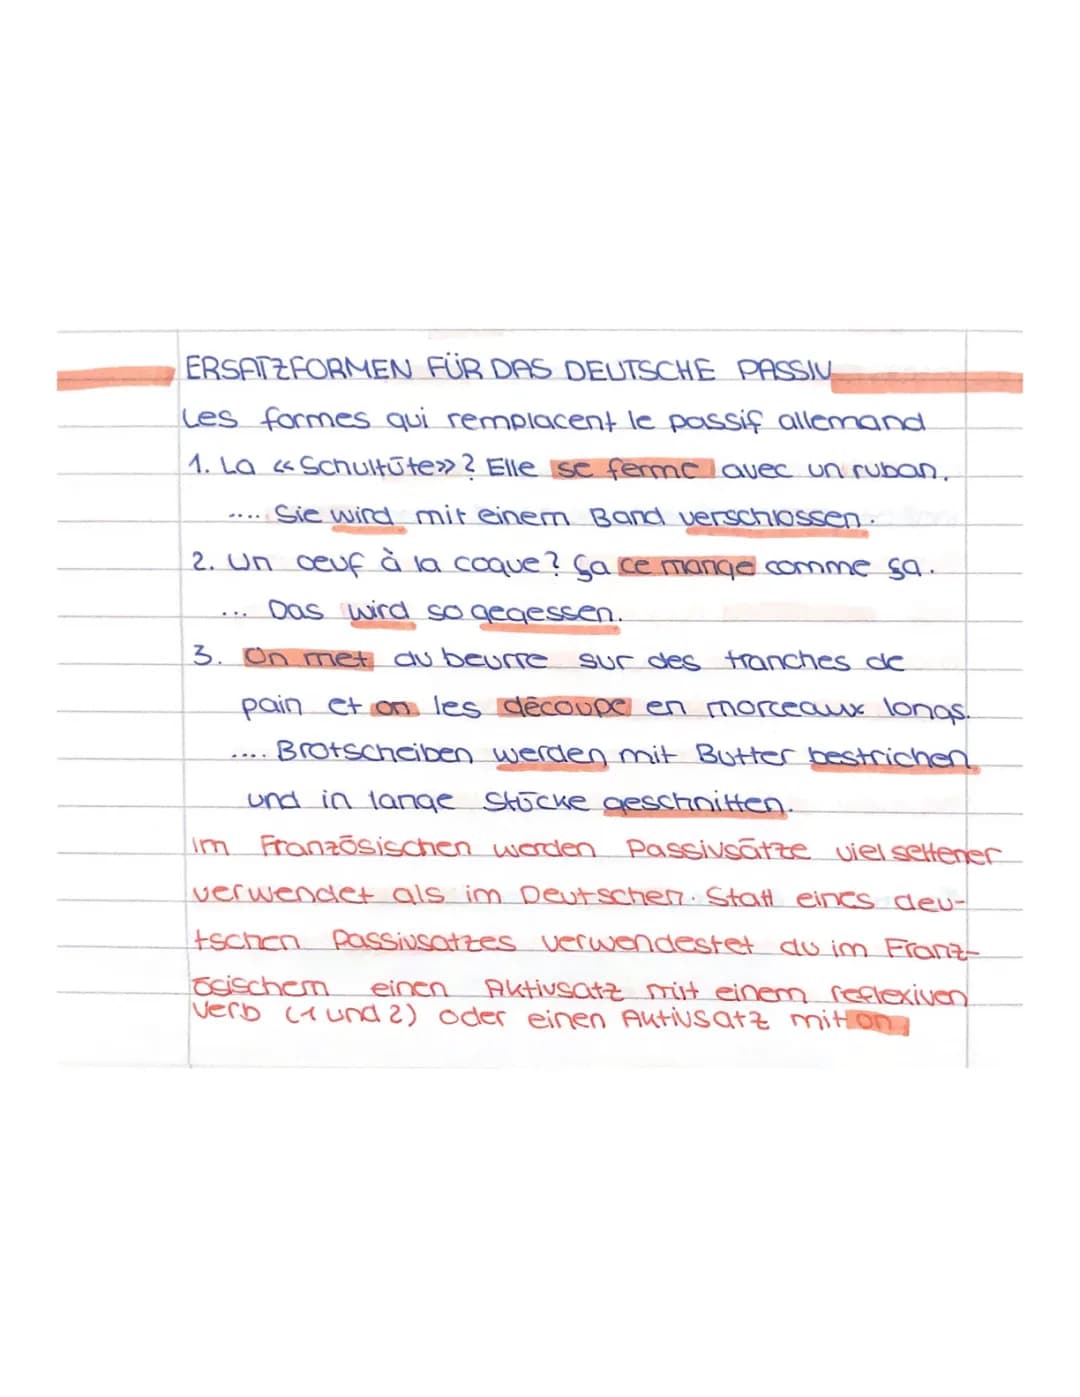 ERSATZFORMEN FÜR DAS DEUTSCHE PASSIV
Les formes qui remplacent le passif allemand
1. La «Schultüte»? Elle se ferme avec un ruban.
.... Sie wird mit einem Band verschlossen.
2. Un oeuf à la coque? Ça ce mange comme ça.
... Das wird so gegessen.
3. On met du beurre sur des tranches de
pain et on les découpe en morceaux longs.
.... Brotscheiben werden mit Butter bestrichen
und in lange Stücke geschnitten.
im Französischen werden Passivsätze viel seltener
verwendet als im Deutschen. Statt eines deu-
tschen Passivsatzes verwendestet du im Franz-
ösischem einen Aktivsatz mit einem reflexiven
Verb (1 und 2) oder einen Aktivsatz mit on